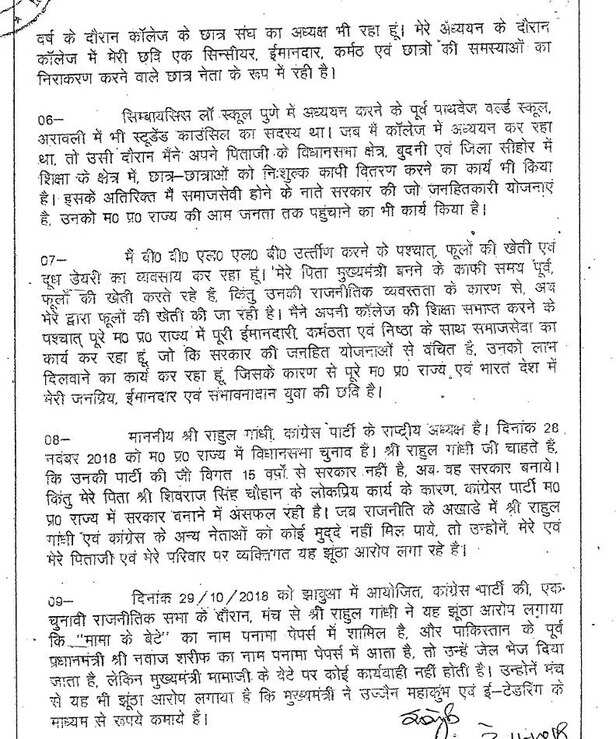 वर्ष के दौरान कॉलेज के छात्र संघ का अध्यक्ष भी रहा हूं। मेरे अध्ययन के दौरान
कॉलेज में मेरी छवि एक सिन्सीयर, ईमानदार, कर्मठ एवं छात्रों की समस्याओं का
निराकरण करने वाले छात्र नेता के रूप में रही है।
06– सिम्बायसिस लॉ स्कूल पुणे में अध्ययन करने के पूर्व पाथवेज वर्ल्ड स्कूल,
अरावली में भी स्टूडेंड काउंसिल का सदस्य था। जब मै कॉलेज में अध्ययन कर रहा
था, तो उसी दौरान मैंने अपने पिताजी के विधानसभा क्षेत्र, बुदनी एवं जिला सीहोर में
शिक्षा के क्षेत्र में, छात्र–छात्राओं को निःशुल्क कापी वितरण करने का कार्य भी किया
है। इसके अतिरिक्त मै समाजसेवी होने के नाते सरकार की जो जनहितकारी योजनाएं
है, उनको म० प्र० राज्य की आम जनता तक पहुंचाने का भी कार्य किया है।
07– मै बी० बी० एल० एल० बी० उर्त्तीण करने के पश्चात्, फूलों की खेती एवं
दूध डेयरी का व्यवसाय कर रहा हूं। मेरे पिता मुख्यमंत्री बनने के काफी समय पूर्व,
फूलों की खेती करते रहे हैं, किंतु उनकी राजनीतिक व्यवस्तता के कारण से, अब
मेरे द्वारा फूलों की खेती की जा रही है। मैंने अपनी कॉलेज की शिक्षा समाप्त करने के
पश्चात् पूरे म० प्र० राज्य में पूरी ईमानदारी, कर्मठता एवं निष्ठा के साथ समाजसेवा का
कार्य कर रहा हूं, जो कि सरकार की जनहित योजनाओं से वंचित है, उनको लाभ
दिलवाने का कार्य कर रहा हूं, जिसके कारण से पूरे म० प्र० राज्य एवं भारत देश में
मेरी जनप्रिय, ईमानदार एवं संभावनादान युवा की छवि है।
08– माननीय श्री राहुल गांधी, कांग्रेस पार्टी के राष्ट्रीय अध्यक्ष है। दिनांक 28
नवंबर 2018 को म० प्र० राज्य में विधानसभा चुनाव है। श्री राहुल गांधी जी चाहते है,
कि उनकी पार्टी की जो विगत 15 वर्षों से सरकार नहीं है, अब वह सरकार बनाये।
किंतु मेरे पिता श्री शिवराज सिंह चौहान के लोकप्रिय कार्य के कारण, कांग्रेस पार्टी म०
प्र० राज्य में सरकार बनाने में अंसफल रही है। जब राजनीति के अखाडे में श्री राहुल
गांधी एवं कांग्रेस के अन्य नेताओं को कोई मुद्दे नहीं मिल पाये, तो उन्होनें, मेरे एवं
मेरे पिताजी एवं मेरे परिवार पर व्यक्तिगत यह झूंठा आरोप लगा रहे है।
09– दिनांक 29/10/2018 को झाबुआ में आयोजित, कांग्रेस पार्टी की, एक
चुनावी राजनीतिक सभा के दौरान, मंच से श्री राहुल गांधी ने यह झूंठा आरोप लगाया
कि "मामा के बेटे" का नाम पनामा पेपर्स में शामिल है, और पाकिस्तान के पूर्व
प्रधानमंत्री श्री नवाज शरीफ का नाम पनामा पेपर्स में आता है, तो उन्हें जेल भेज दिया
जाता है, लेकिन मुख्यमंत्री मामाजी के बेटे पर कोई कार्यवाही नहीं होती है। उन्होनें मंच
से यह भी झूंठा आरोप लगाया है कि मुख्यमंत्री ने उज्जैन महाकुंभ एवं ई–टेडरिंग के
माध्यम से रूपये कमाये है।